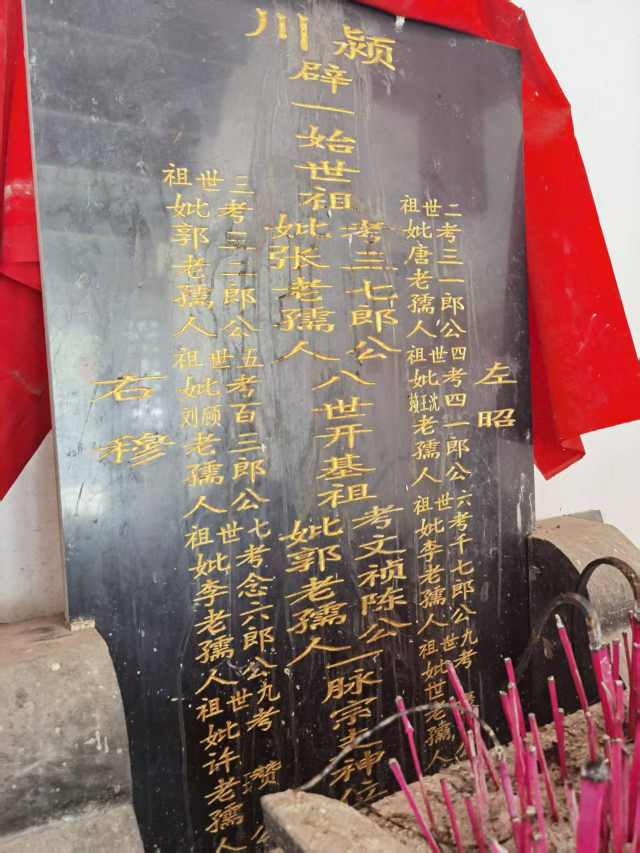 颍川
左昭
二世祖
考三一郎公
妣唐老孺人
四世祖
考四一郎公
妣沈王赖老孺人
六世祖
考千七郎公
妣李老孺人
九世祖
考
妣世老孺人
辟一始世祖
考三七郎公
妣张老孺人
八世开基祖
考文祯陈公
妣郭老孺人
一脉宗支神位
三世祖
考二二郎公
妣郭老孺人
五世祖
考百三郎公
妣顾刘老孺人
七世祖
考念六郎公
妣李老孺人
九世祖
考瓒公
妣许老孺人
右穆